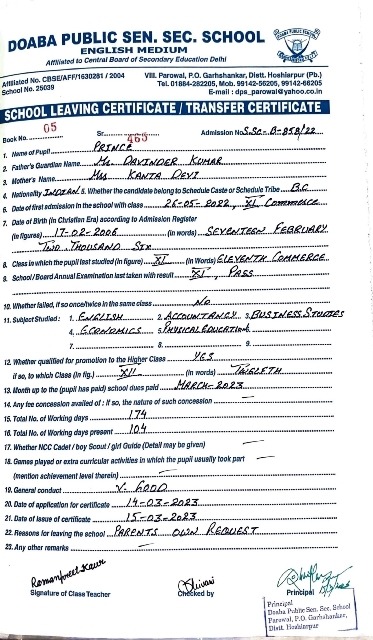 DOABA PUBLIC SEN. SEC. SCHOOL
ENGLISH MEDIUM
Affiliated to Central Board of Secondary Education Delhi
Affiliated No. CBSE/AFF/1630281 / 2004
School No. 25039
Vill. Parowal, P.O. Garhshankar, Distt. Hoshierpur (Pb.)
Tel. 01884-282205, Mob. 99142-56205, 99142-66205
E-mail : dps_parowal@yahoo.co.in
SCHOOL LEAVING CERTIFICATE / TRANSFER CERTIFICATE
Book No. 05 Sr. 465 Admission No S.Sc.-B-858/22
1. Name of Pupil PRINCE
2. Father's Guardian Name Mr. DAVINDER KUMAR
3. Mother's Name Mrs KANTA DEVI
4. Nationality INDIAN 5. Whether the candidate belong to Schedule Caste or Schedule Tribe B.C
6. Date of first admission in the school with class 26-05-2022, XI Commerce
7. Date of Birth (in Christian Era) according to Admission Register
(in figures) 17-02-2006 (in words) SEVENTEEN FEBRUARY
TWO THOUSAND SIX
8. Class in which the pupil last studied (in figure) XI (in Words) ELEVENTH COMMERCE
9. School / Board Annual Examination last taken with result XI, PASS
10. Whether failed, if so once/twice in the same class NO
11. Subject Studied : 1. ENGLISH 2. ACCOUNTANCY 3. BUSINESS STUDIES
4. ECONOMICS 5. PHYSICAL EDUCATION 6.
7. 8. 9.
12. Whether qualified for promotion to the Higher Class YES
if so, to which Class (in fig.) XII (in words) TWELFTH
13. Month up to the (pupil has paid) school dues paid MARCH-2023
14. Any fee concession availed of : if so, the nature of such concession —
15. Total No. of Working days 174
16. Total No. of Working days present 104
17. Whether NCC Cadet / boy Scout / girl Guide (Detail may be given) —
18. Games played or extra curricular activities in which the pupil usually took part
(mention achievement level therein) —
19. General conduct V. GOOD
20. Date of application for certificate 14-03-2023
21. Date of issue of certificate 15-03-2023
22. Reasons for leaving the school PARENTS OWN REQUEST
23. Any other remarks —
Ramanpreet Kaur
Shivani
Signature of Class Teacher Checked by Principal
Principal
Doaba Public Sen. Sec. School
Parowal, P.O. Garhshankar,
Distt. Hoshiarpur